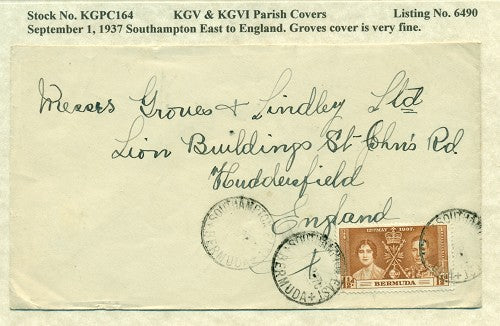 Stock No. KGPC164 KGV & KGVI Parish Covers Listing No. 6490
September 1, 1937 Southampton East to England. Groves cover is very fine.
Messrs Groves & Lindley Ltd
Lion Buildings St John's Rd.
Huddersfield
England
SOUTHAMPTON
BERMUDA
SOUTHAMPTON EAST
BERMUDA
12TH MAY 1937
BERMUDA
1½D